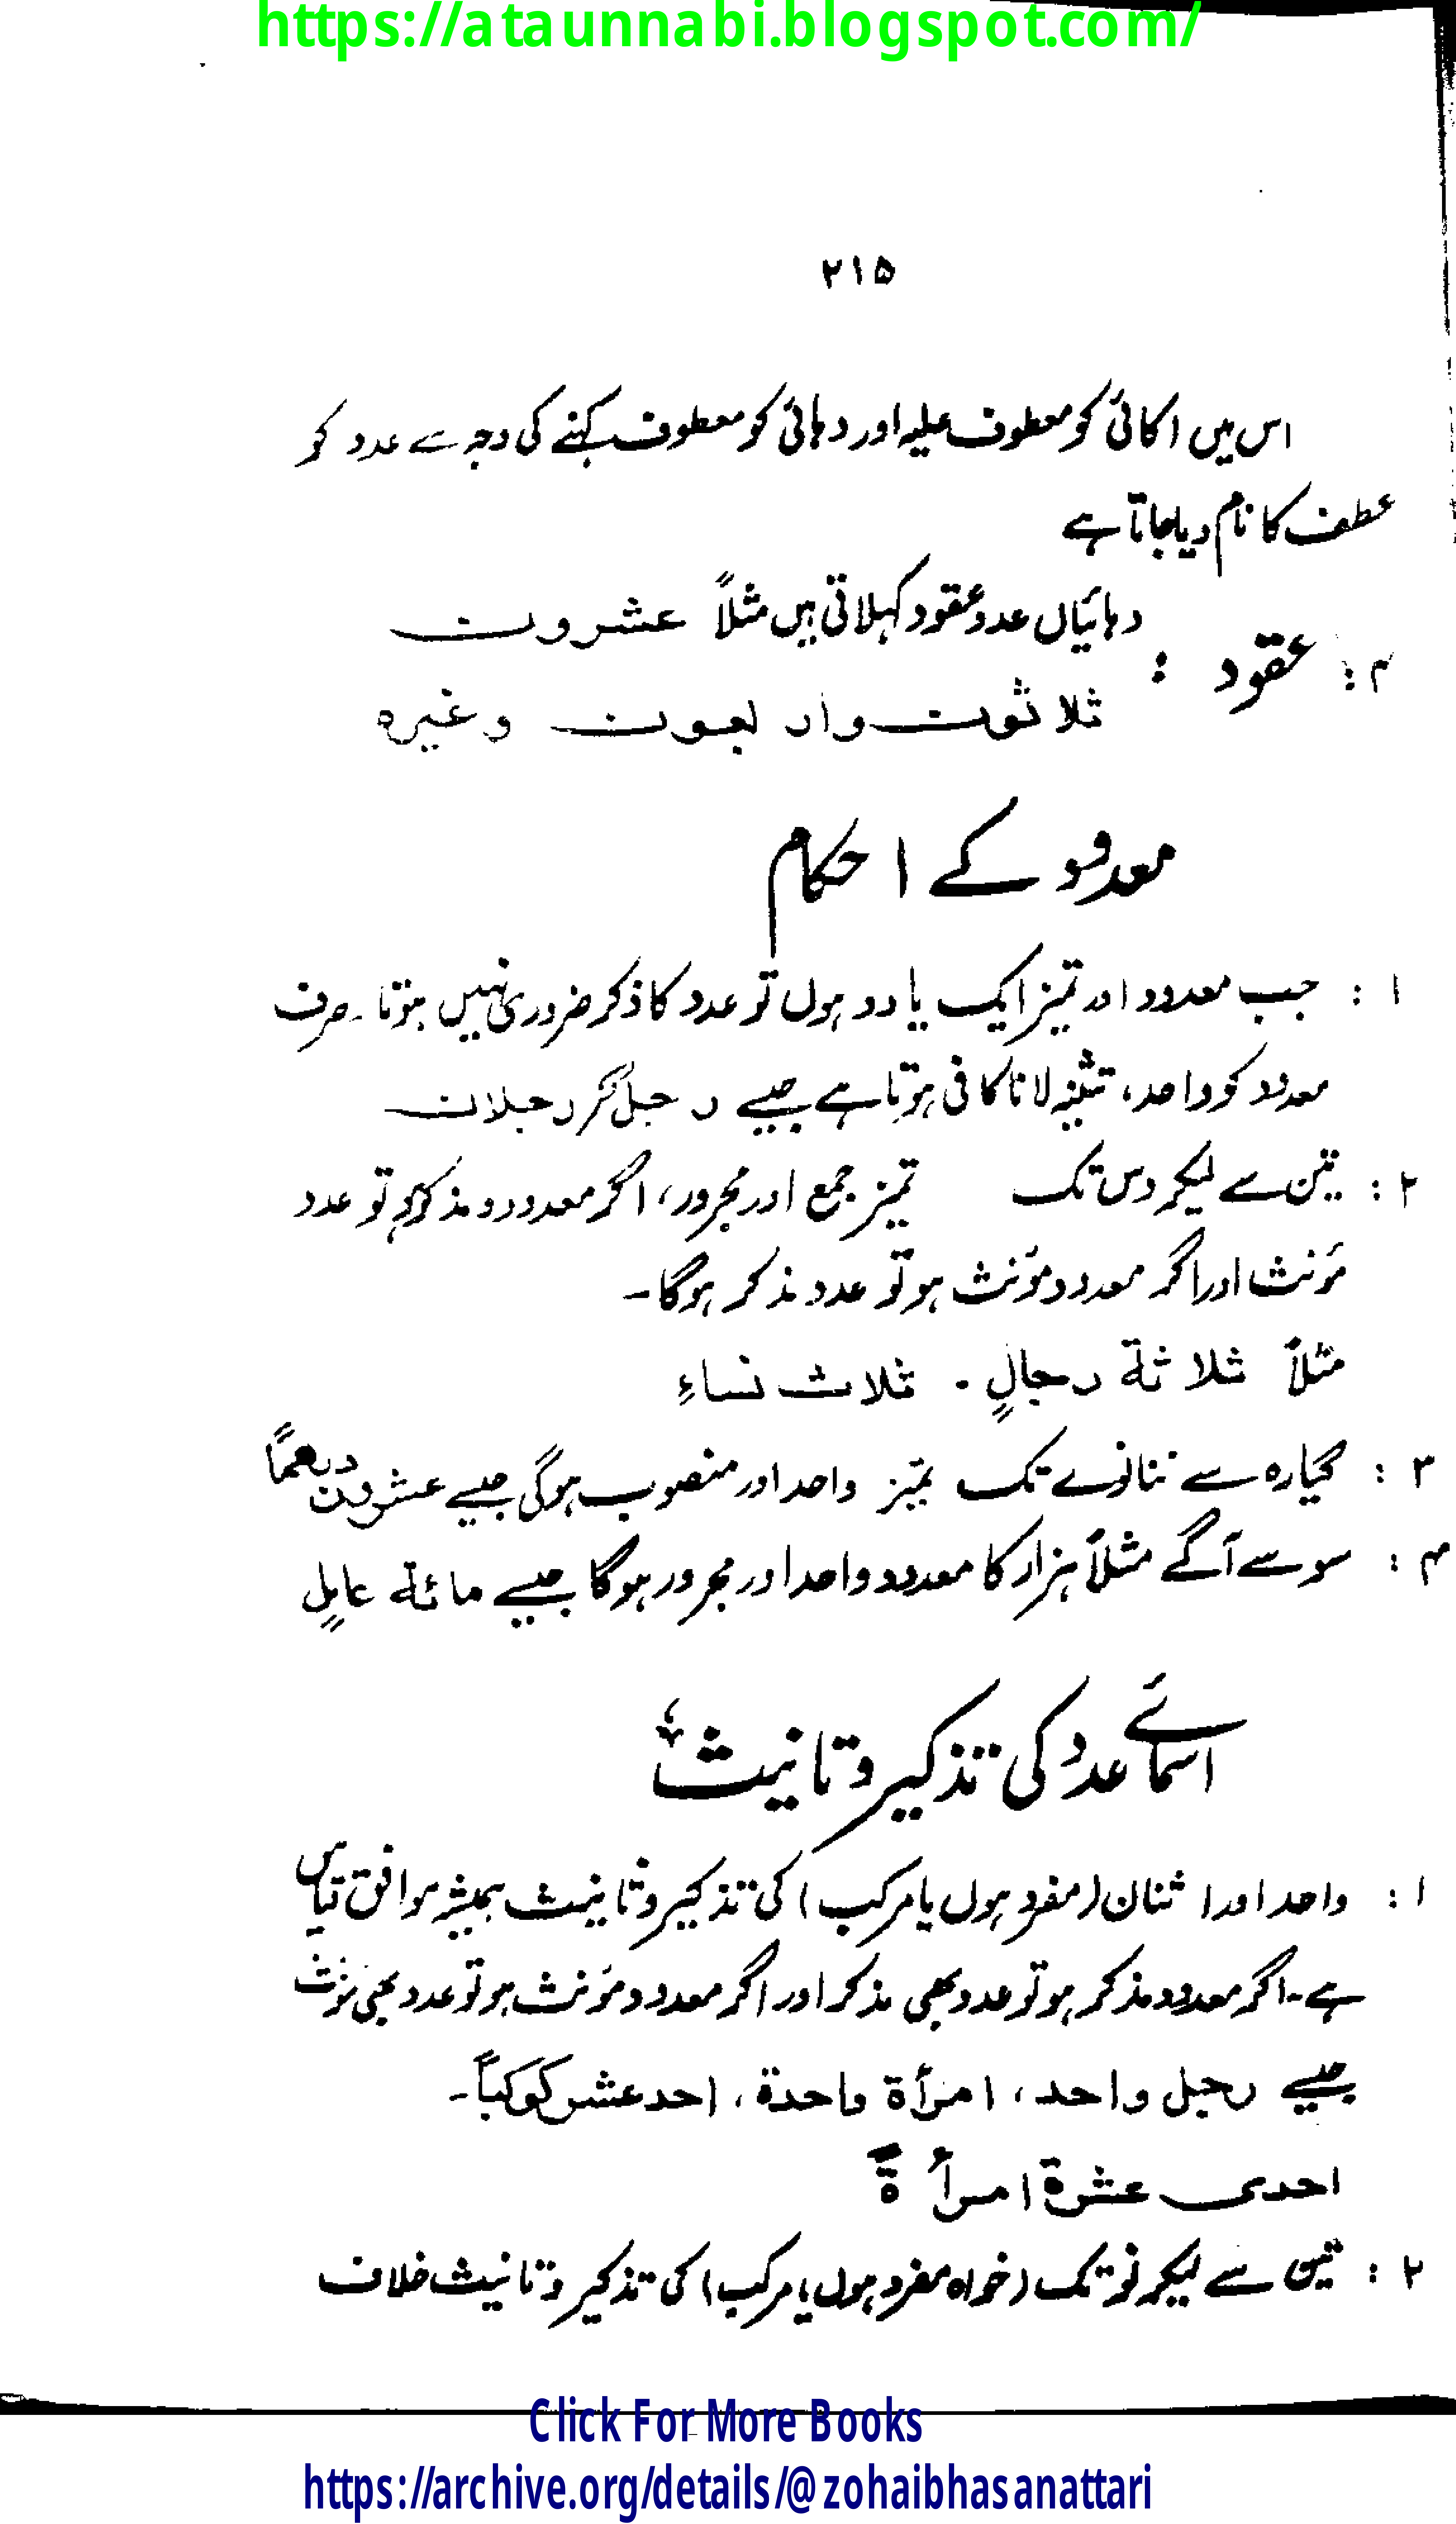 https://ataunnabi.blogspot.com/
۲۱۵
اس میں اکائی کو معطوف علیہ اور دہائی کو معطوف کہنے کی وجہ سے عدد کو
عطف کا نام دیا جاتا ہے
۴: عقود : دہائیاں عدد عقود کہلاتی ہیں مثلاً عشرون
ثلاثون وار بعون وغیرہ
معدود کے احکام
۱ : جب معدود اور تمیز ایک یا دو ہوں تو عدد کا ذکر ضروری نہیں ہوتا۔ صرف
معدود کو واحد، تثنیہ لانا کافی ہوتا ہے جیسے رجلٌ رجلان
۲ : تین سے لیکر دس تک تمیز جمع اور مجرور، اگر معدود مذکر ہو تو عدد
مؤنث اور اگر معدود مؤنث ہو تو عدد مذکر ہوگا۔
مثلاً ثلاثة رجالٍ . ثلاث نساءِ
۳ : گیارہ سے ننانوے تک تمیز واحد اور منصوب ہوگی جیسے عشرون درهماً
۴ : سو سے آگے مثلاً ہزار کا معدود واحد اور مجرور ہوگا جیسے مائة عابلٍ
اسمائے عدد کی تذکیر وتانیث
۱ : واحد اور اثنان (مفرد ہوں یا مرکب) کی تذکیر وتانیث ہمیشہ موافق قیاس
ہے۔ اگر معدود مذکر ہو تو عدد بھی مذکر اور اگر معدود مؤنث ہو تو عدد بھی مؤنث
جیسے رجل واحد، امرأة واحدة، احد عشر کوکباً۔
احدی عشرة امرأةً
۲ : تین سے لیکر نو تک (خواہ مفرد ہوں یا مرکب) کی تذکیر وتانیث خلاف
Click For More Books
https://archive.org/details/@zohaibhasanattari